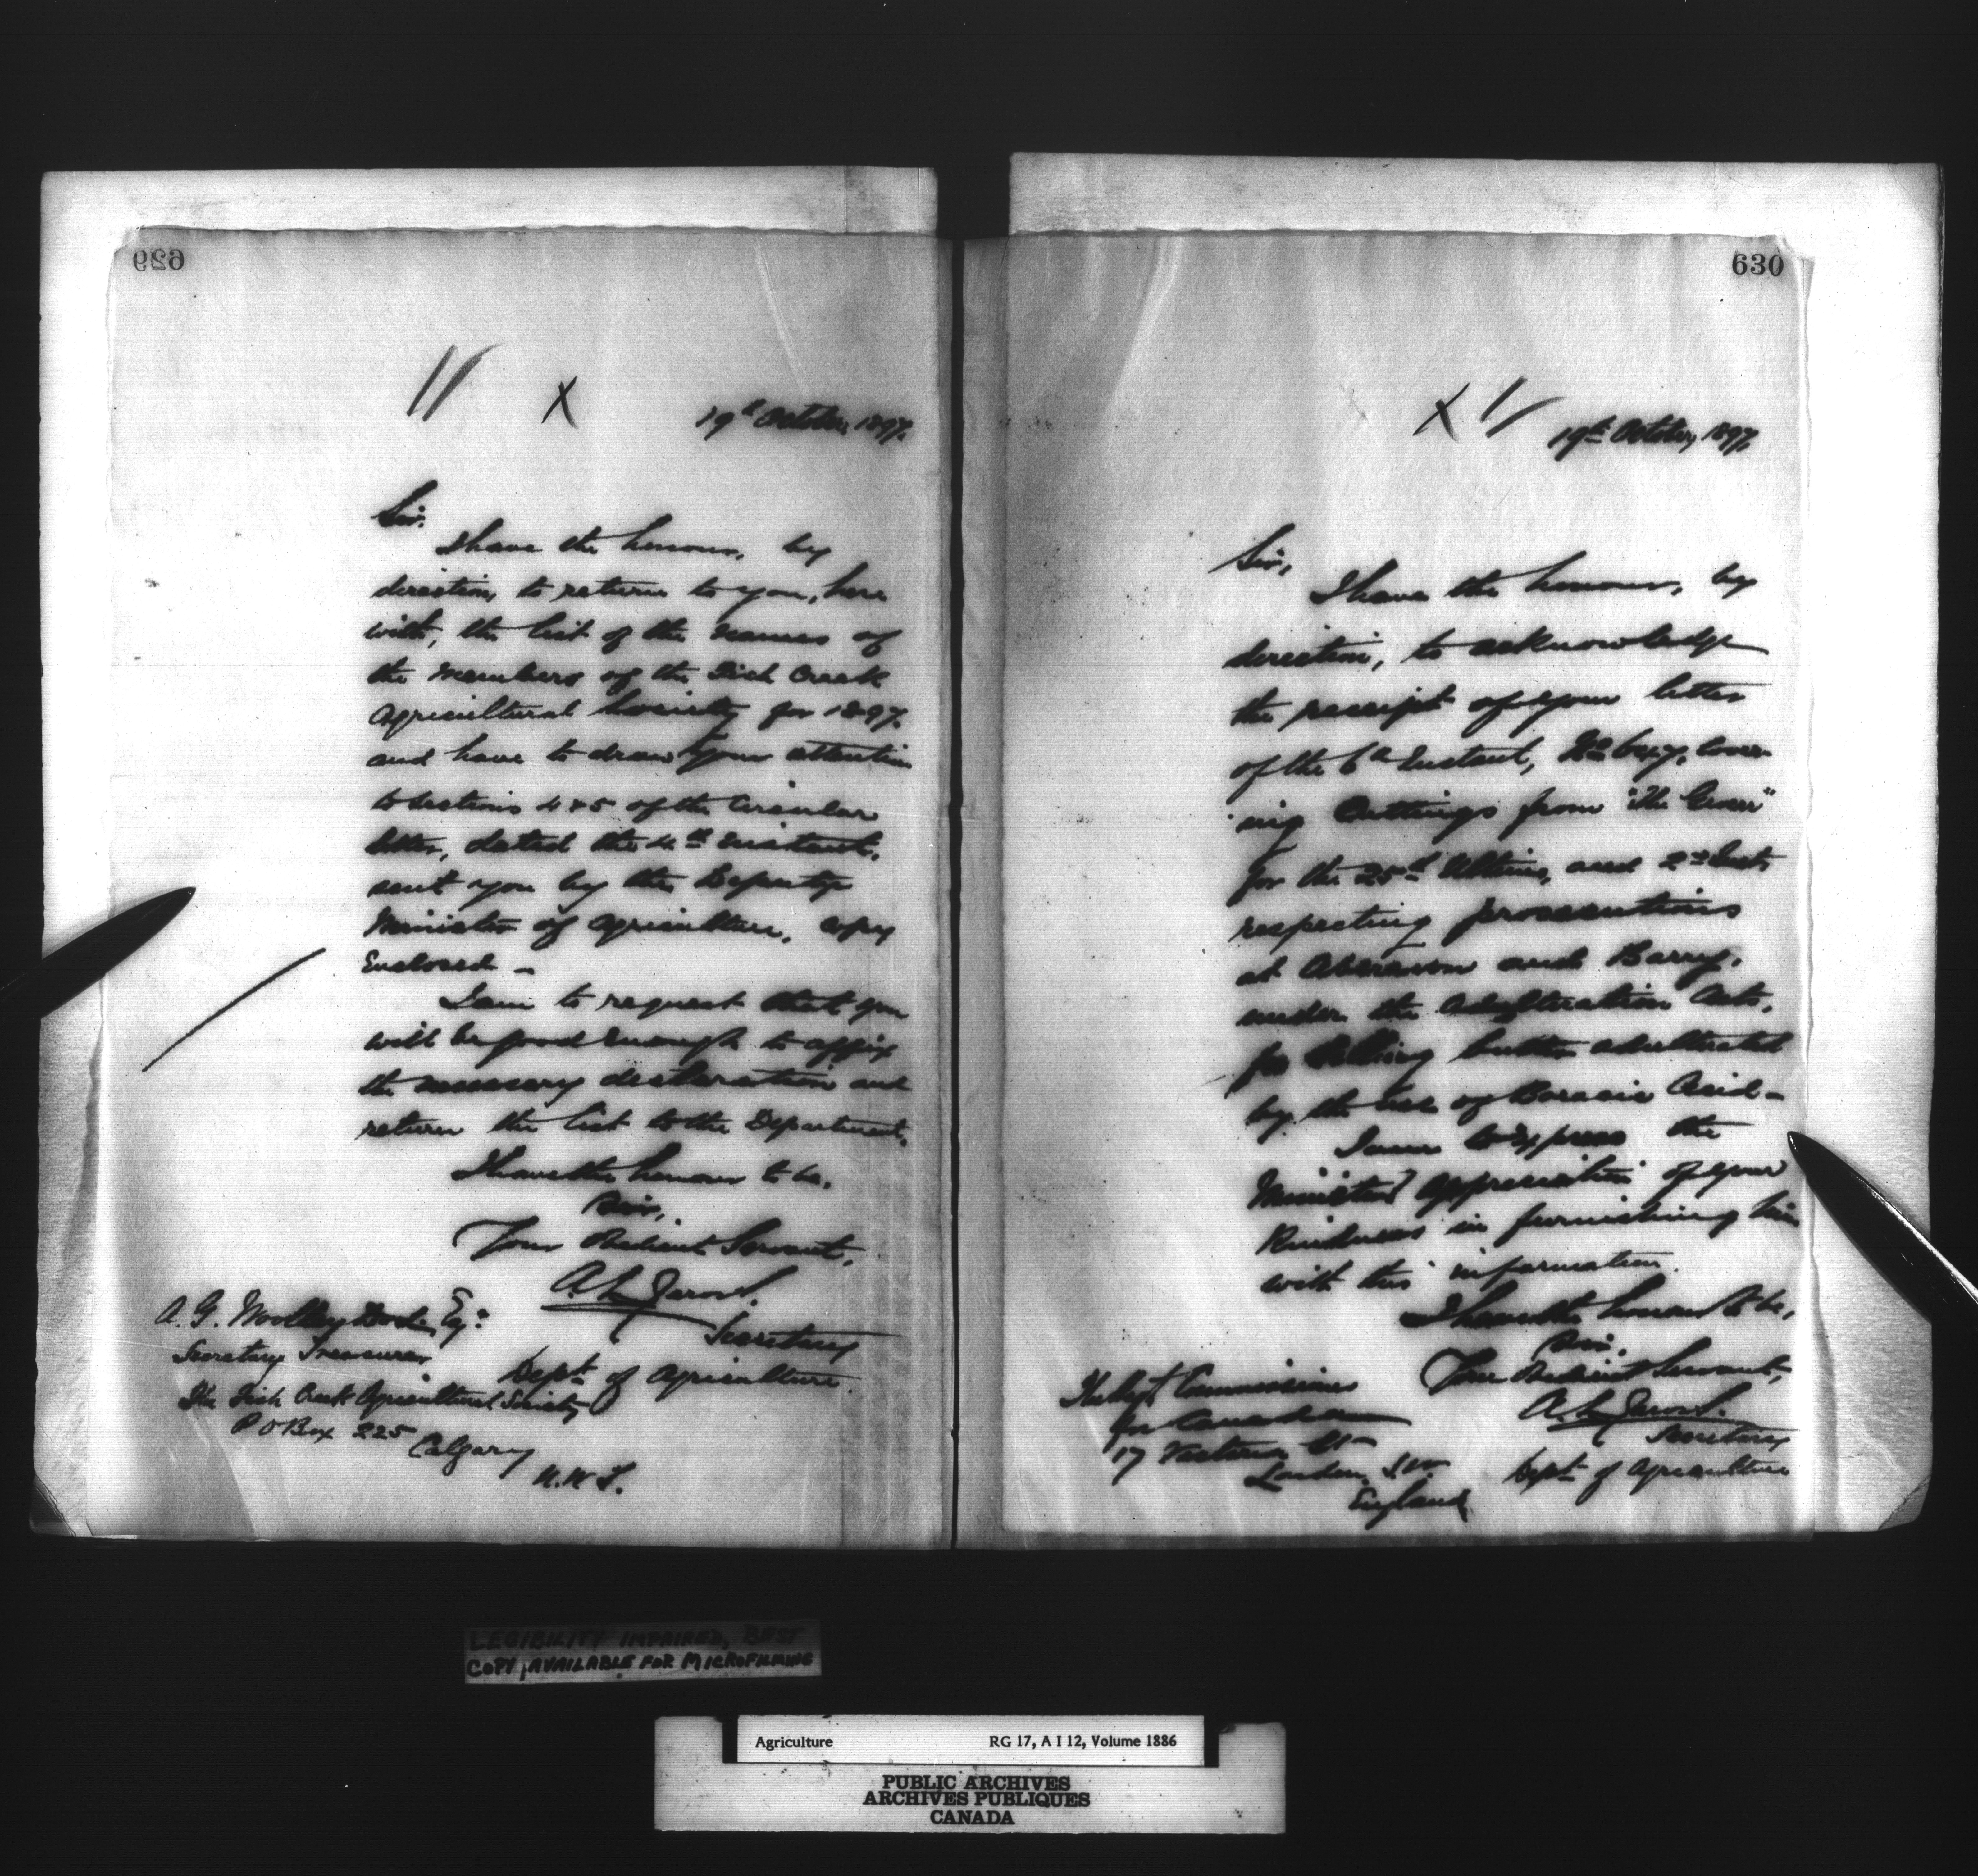 629
19th October, 1897.
Sir.
I have the honour, by
direction, to return to you, here
with, the list of the names of
the members of the Fish Creek
Agricultural Society for 1897.
and have to draw your attention
to sections 4 & 5 of the Circular
letter, dated the 4th Instant,
sent you by the Deputy
Minister of Agriculture, copy
Enclosed –
I am to request that you
will be good enough to affix
the necessary declaration and
return the list to the Department.
I have the honour to be,
Sir,
Your Obedient Servant,
A. L. Jarvis.
Secretary
Dept of Agriculture.
A. G. Woolley Dod Esq:
Secretary Treasurer
The Fish Creek Agricultural Society
P O Box 225
Calgary
N. W. T.
630
19th October, 1897.
Sir,
I have the honour, by
direction, to acknowledge
the receipt of your letter
of the 6th Instant, No cover
ing Cuttings from "The Grocer"
for the 25th Ultimo, and 2nd Inst.
respecting prosecutions
at Aberavon and Barry,
under the Adulteration Acts,
for Selling butter adulterated
by the use of Boracic Acid –
I am to express the
Minister's appreciation of your
Kindness in furnishing him
with this information.
I have the honour to be,
Sir,
Your Obedient Servant,
A. L. Jarvis.
Secretary
Dept of Agriculture
The High Commissioner
for Canada
17 Victoria St
London, S.W.
England
LEGIBILITY IMPAIRED, BEST
COPY AVAILABLE FOR MICROFILMING
Agriculture RG 17, A I 12, Volume 1886
PUBLIC ARCHIVES
ARCHIVES PUBLIQUES
CANADA